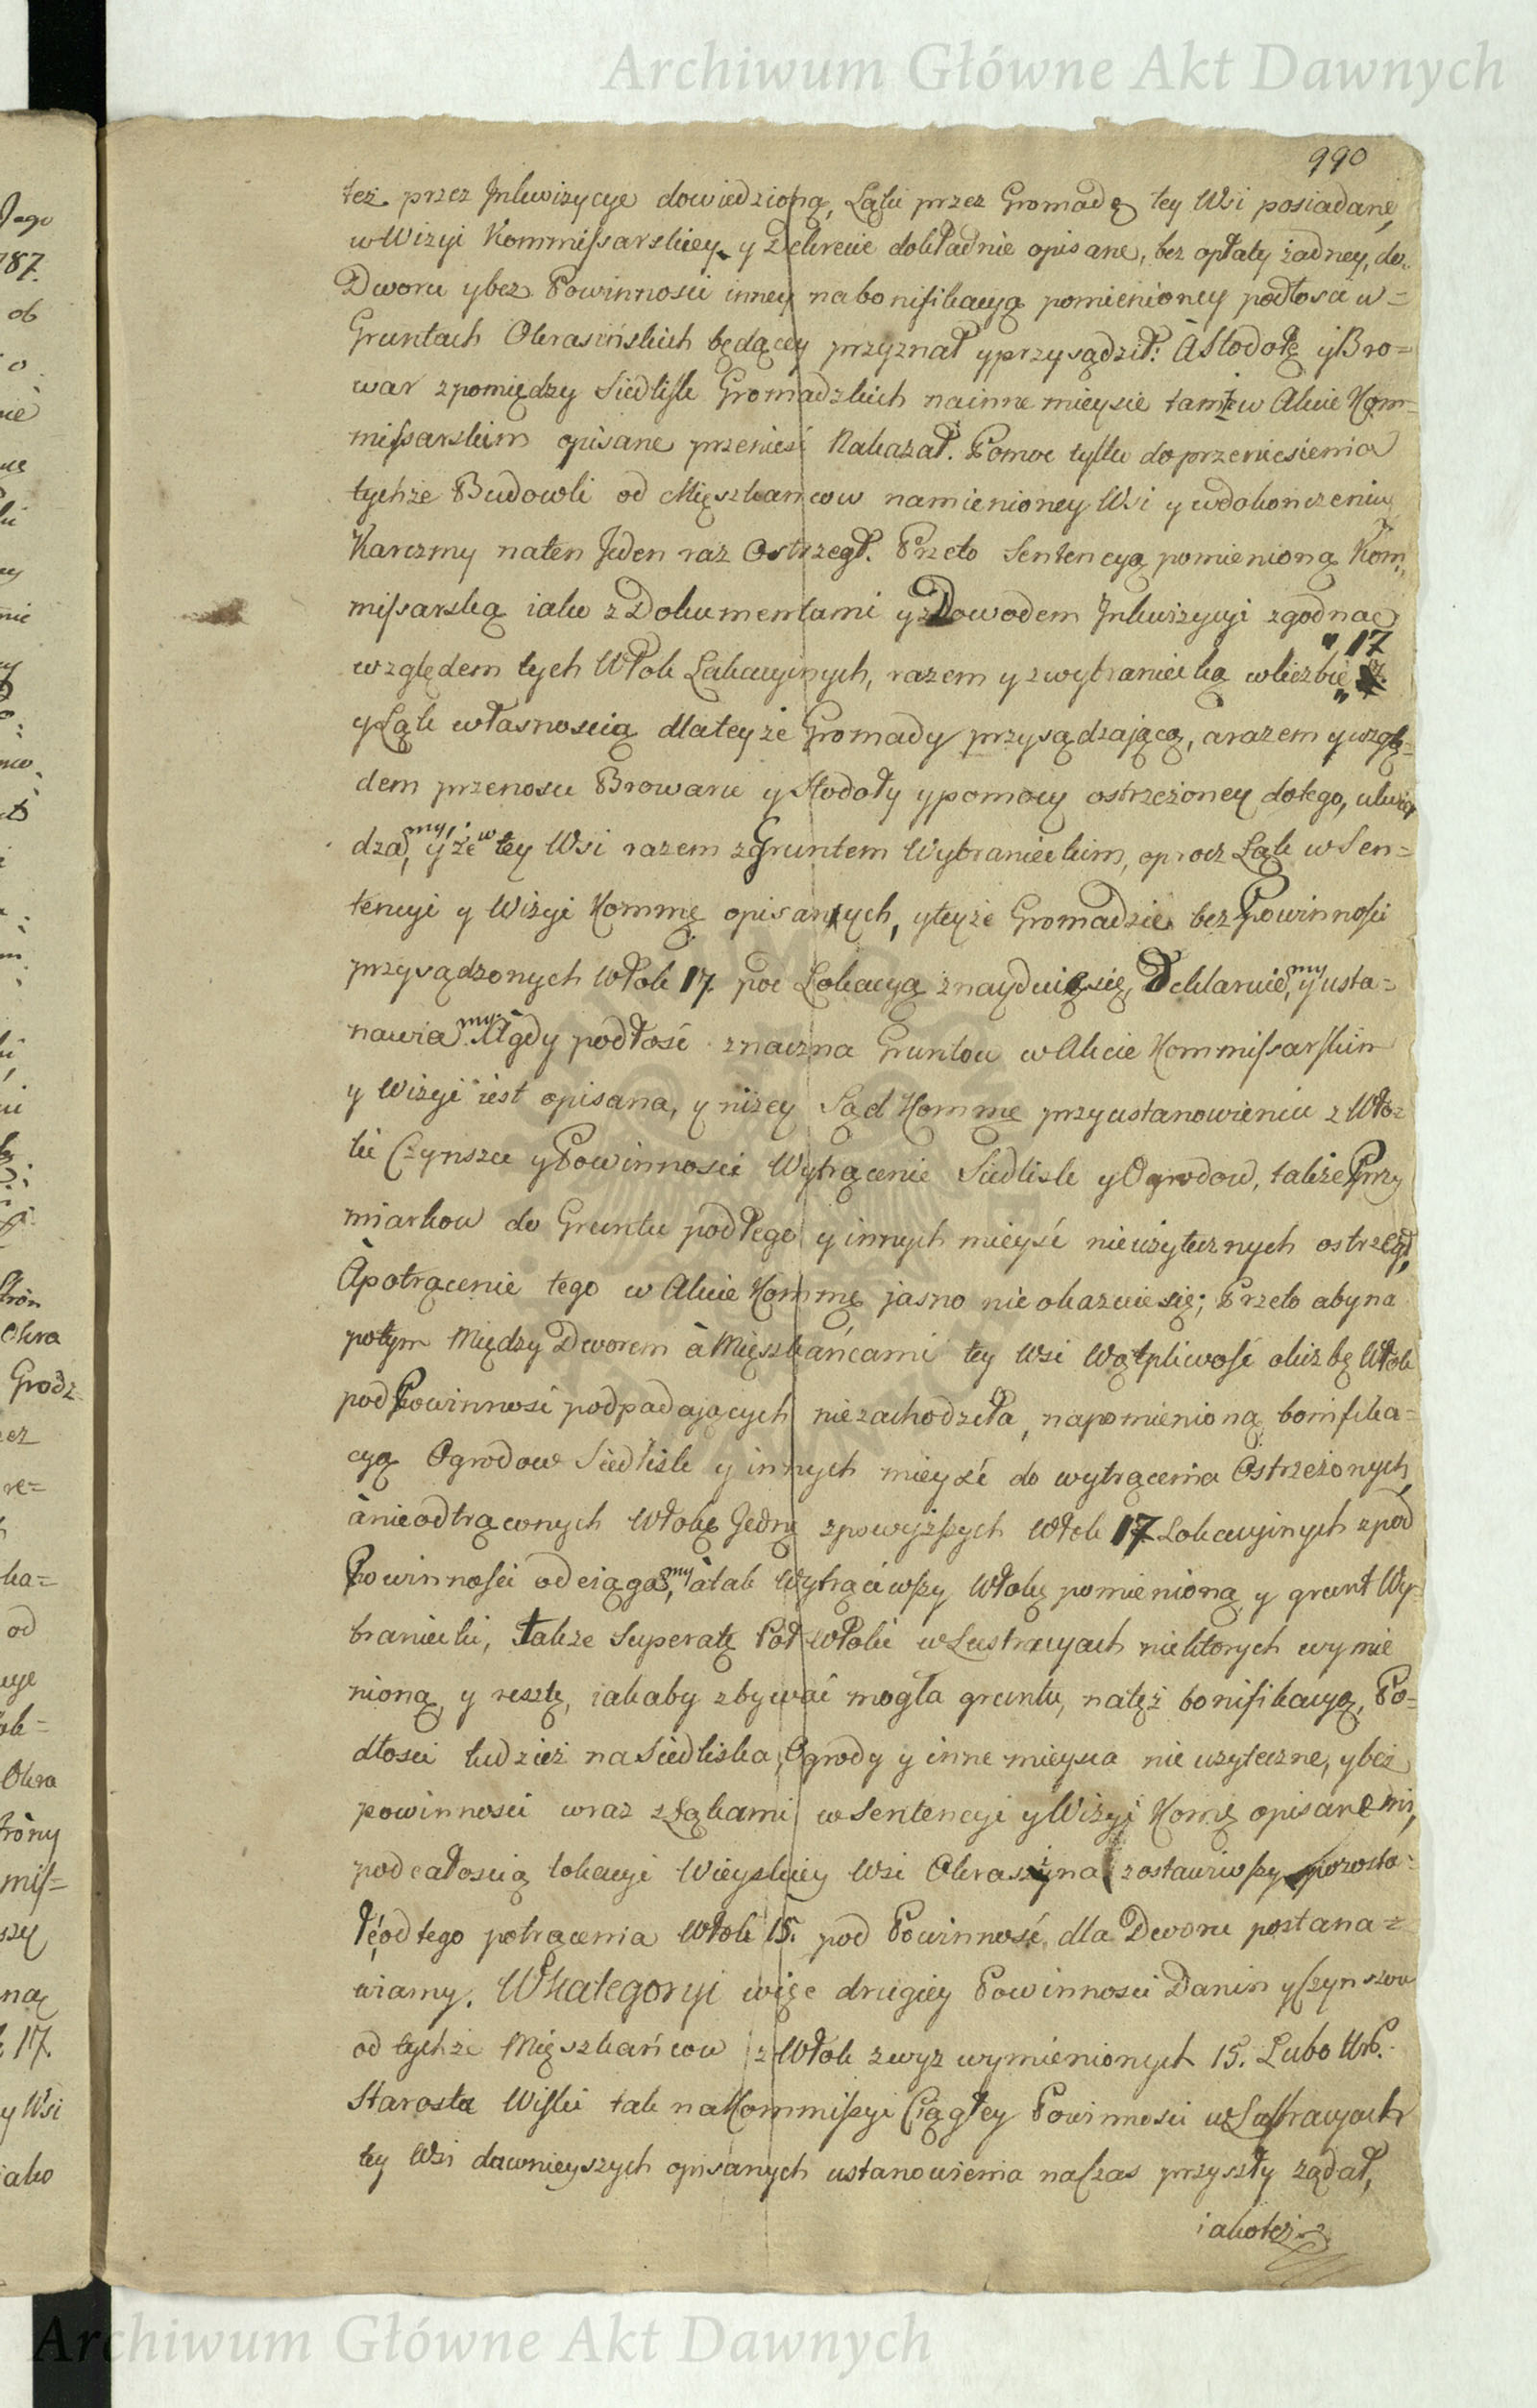 Archiwum Główne Akt Dawnych
990
też przez Inkwizycye dowiedzioną, Łąki przez Gromadę tey Wsi posiadane,
w Wizyi Kommissarskiey y Dekrecie dokładnie opisane, bez opłaty żadney, do
Dworu y bez Powinnosci inney na bonifikacyą pomienioney podłosci w=
Gruntach Okrasińskich będącey przyznał y przysądził: À Stodołę y Bro=
war z pomiędzy Siedlisk Gromadzkich na inne mieysce tamże w Akcie Kom=
missarskim opisane przenieść Nakazał. Pomoc tylko do przeniesienia
tychże Budowli od Mięszkancow namienioney Wsi y w dokonczeniu
Karczmy na ten Jeden raz Ostrzegł. Przeto Sentencyą pomienioną Kom=
missarską iako z Dokumentami y z Dowodem Inkwizycyi zgodną
względem tych Włok Lokacyinych, razem y z wybraniecką w liczbie 17
y Łąk własnoscią dla teyże Gromady przysądzaiącą, a razem y wzglę=
dem przenosu Browaru y Stodoły y pomocy ostrzeżoney do tego,
dzamy, y że w tey Wsi razem z Gruntem Wybranieckim, oprocz Łąk w Sen=
tencyi y Wizyi Kommę opisanych, y teyże Gromadzie bez Powinnosci
przysądzonych Włok 17. pod Lokacyą znayduie się, Deklaruiemy, y usta=
nawiamy. À gdy podłość znaczna Gruntow w Akcie Kommissarskim
y Wizyi iest opisana, y niżey Sąd Kommę przy ustanowieniu z Wło=
ki Czynszu y Powinnosci Wytrącenie Siedlisk y Ogrodow, także Przy
miarkow do Gruntu podłego y innych mieysć nieużytecznych ostrzegł,
À potrącenie tego w Akcie Kommę jasno nie okazuie się; Przeto aby na
potym Między Dworem à Mięszkańcami tey Wsi Wątpliwość o liczbę Włok
pod Powinność podpadaiących nie zachodziła, na pomienioną bonifika=
cyą Ogrodow Siedlisk y innych mieysć do wytrącenia Ostrzeżonych,
à nie odtrąconych Włokę Jedną z powyższych Włok 17. Lokacyinych z pod
Powinnosci odciągamy, à tak Wytrąciwszy Włokę pomienioną y grunt Wy=
braniecki, także Superatę Poł Włoki w Lustracyach niektorych wymie
nioną, y resztę, iakaby zbywać mogła gruntu, na tęż bonifikacyą, Po=
dłosci tudzież na Siedliska, Ogrody y inne mieysca nie użyteczne, y bez
powinnosci wraz z Łąkami w Sentencyi y Wizyi Komę opisanemi,
pod całoscią lokacyi Wieyskiey Wsi Okraszyna zostawiwszy pozosta=
łe od tego potrącenia Włok 15. pod Powinność dla Dworu postana=
wiamy. W Kategoryi więc drugiey Powinnosci Danin y Czynszow
od tychże Mięszkańcow z Włok zwyz wymienionych 15. Lubo Ur.
Starosta Wiski tak na Kommissyi Ciągłey Powinnosci w Lustracyach
tey Wsi dawnieyszych opisanych ustanowienia na czas przyszły żądał,
iakoteż
Archiwum Główne Akt Dawnych